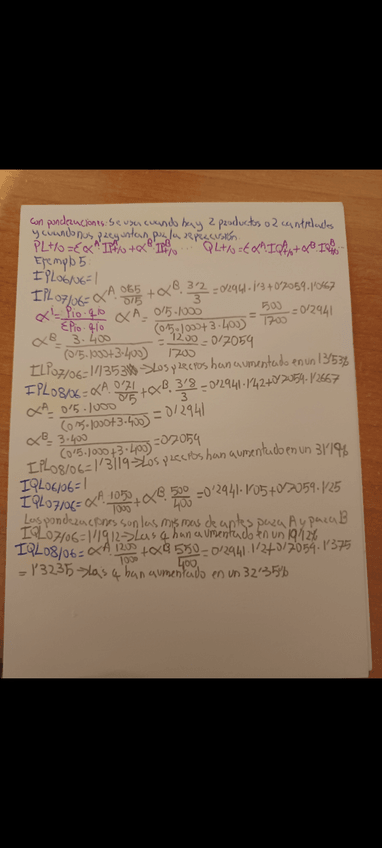 con ponderaciones: Se usa cuando hay 2 productos o 2 cantidades
y cuando nos preguntan por la repercusión
PLt/0 = Σ α^A IP^A t/0 + α^B IP^B t/0 ... QLt/0 = Σ α^A IQ^A t/0 + α^B IQ^B t/0 ...
Ejemplo 5
IPL06/06 = 1
IPL07/06 = α^A · 0'65/0'5 + α^B · 3'2/3 = 0'2941 · 1'3 + 0'7059 · 1'0667
α^i = Pi0 · qi0 / ΣPi0 · qi0 α^A = 0'5 · 1000 / (0'5 · 1000 + 3 · 400) = 500/1700 = 0'2941
α^B = 3 · 400 / (0'5 · 1000 + 3 · 400) = 1200/1700 = 0'7059
ILP07/06 = 1'1353 → Los precios han aumentado en un 13'53%
IPL08/06 = α^A · 0'71/0'5 + α^B · 3'8/3 = 0'2941 · 1'42 + 0'7059 · 1'2667
α^A = 0'5 · 1000 / (0'5 · 1000 + 3 · 400) = 0'2941
α^B = 3 · 400 / (0'5 · 1000 + 3 · 400) = 0'7059
IPL08/06 = 1'3119 → Los precios han aumentado en un 31'19%
IQL06/06 = 1
IQL07/06 = α^A · 1050/1000 + α^B · 500/400 = 0'2941 · 1'05 + 0'7059 · 1'25
Las ponderaciones son las mismas de antes para A y para B
IQL07/06 = 1'1912 → Las q han aumentado en un 19'12%
IQL08/06 = α^A · 1200/1000 + α^B · 550/400 = 0'2941 · 1'2 + 0'7059 · 1'375
= 1'3235 → Las q han aumentado en un 32'35%